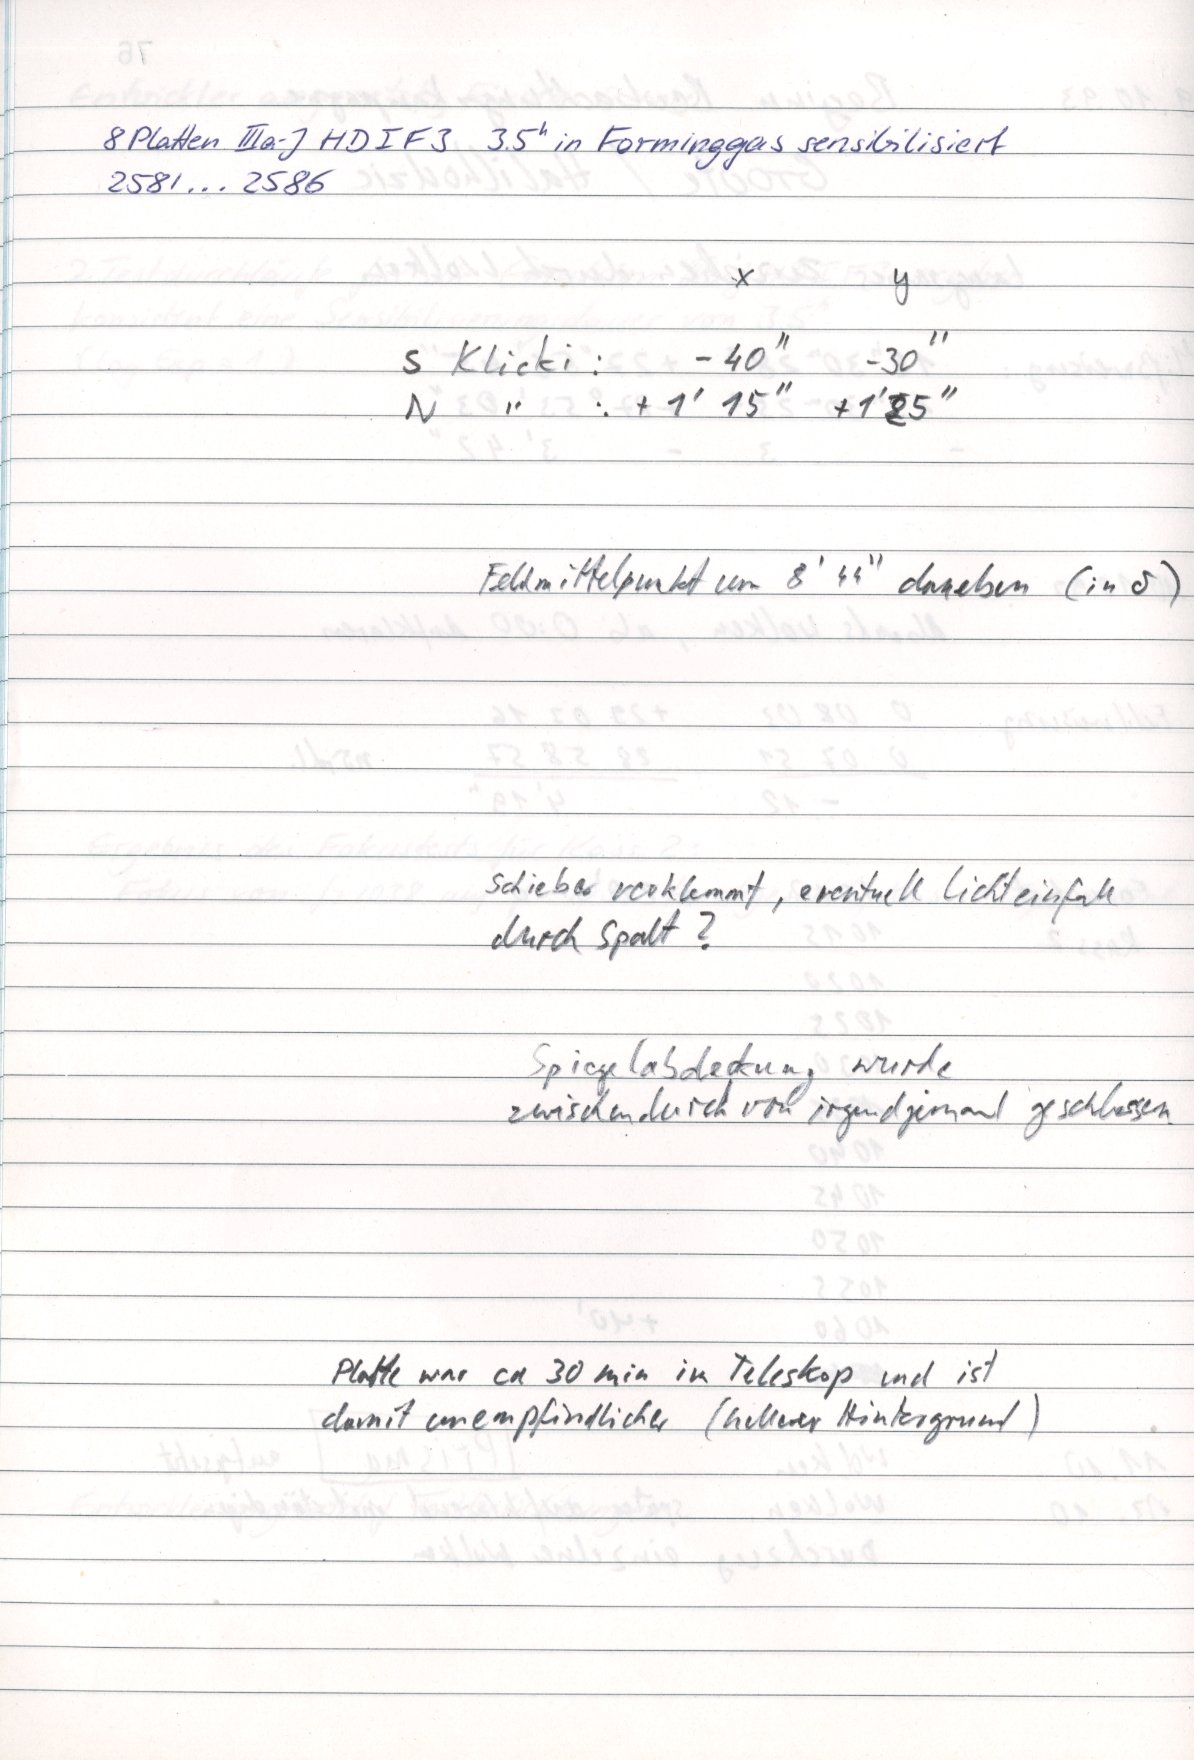 8 Platten IIIa-J HDIF3 3.5ʰ in Forminggas sensibilisiert
2581... 2586
x y
S Klicki : -40" -30"
N " : +1' 15" +1'25"
Feldmittelpunkt um 8' 44" daneben (in δ)
Schieber verklemmt, eventuell Lichteinfall
durch Spalt ?
Spiegelabdeckung wurde
zwischendurch von irgendjemand geschlossen
Platte war ca 30 min im Teleskop und ist
damit unempfindlicher (hellerer Hintergrund)